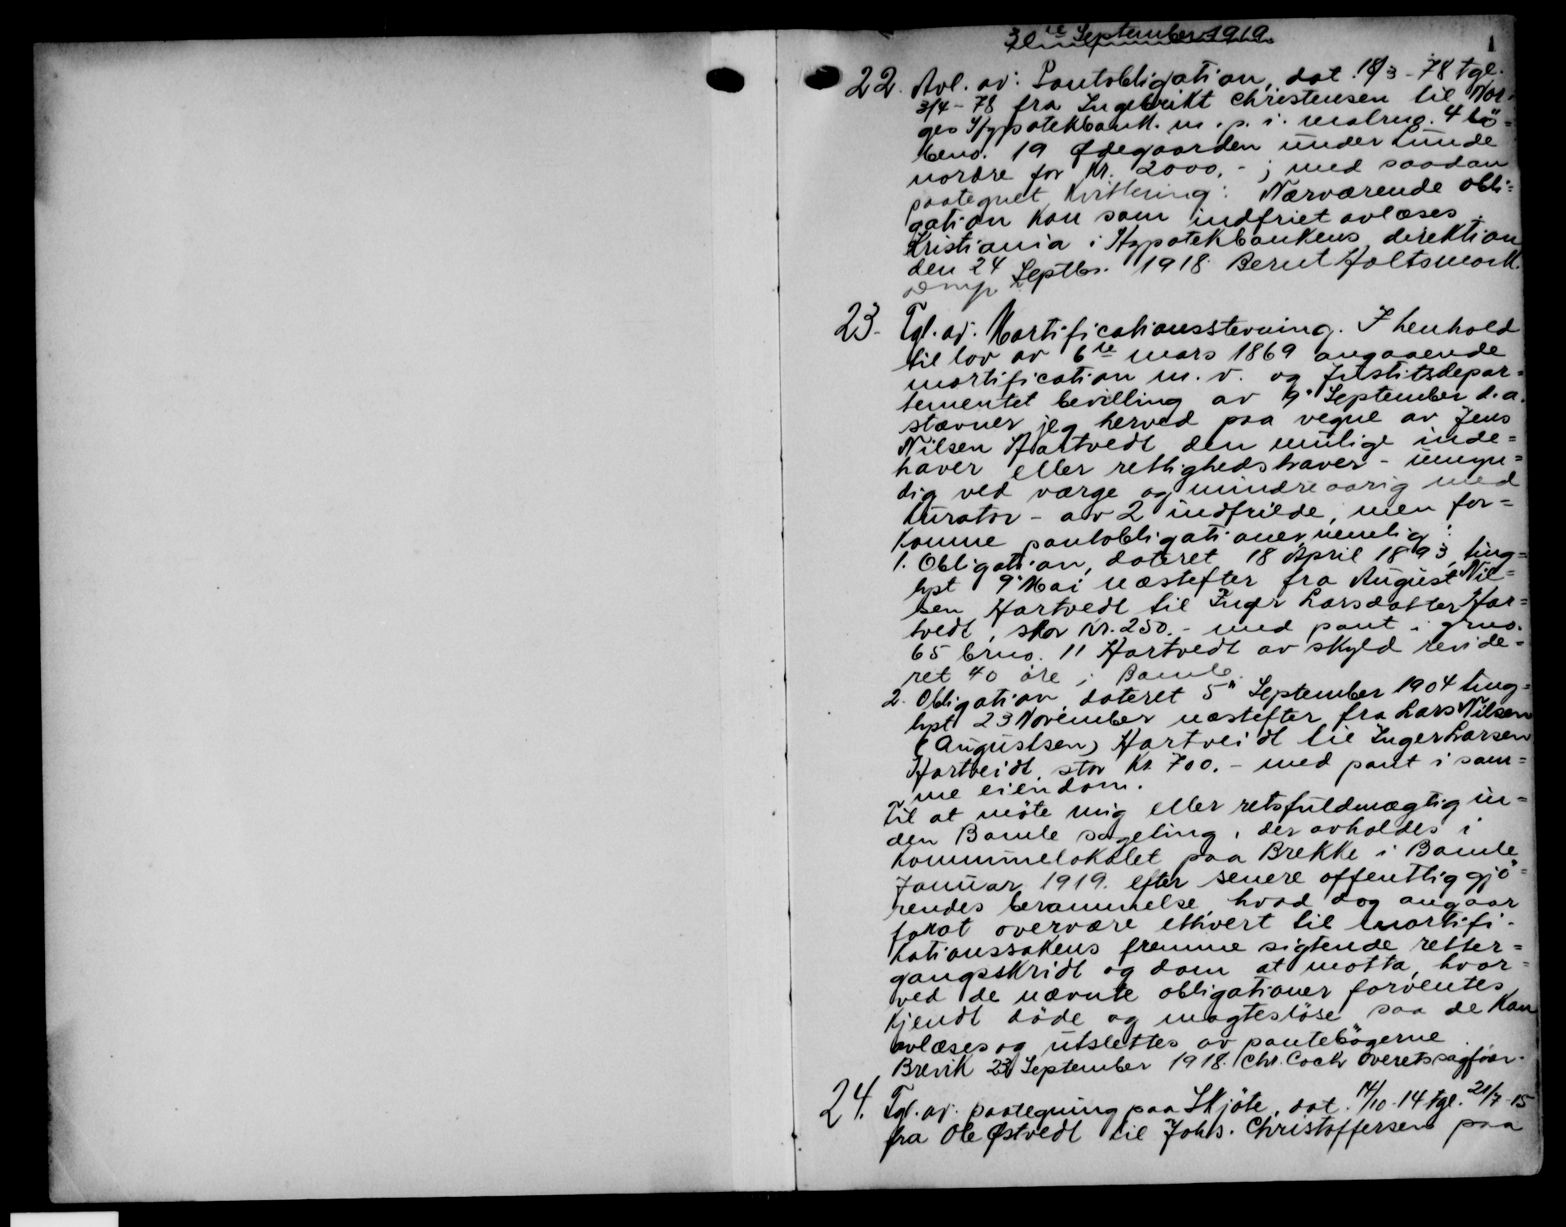 30te September 1919.
1
22. Avl. av: Pantobligation, dat. 18/3 - 78 tgl.
3/4 - 78 fra Ingebrikt Christensen til Nor=
ges Hypotekbank. m. p. i. matrno. 4 lö=
beno. 19 Ødegaarden under Lunde
nordre for Kr. 2000.- ; med saadan
paategnet Kvittering: Nærværende obli=
gation kan som indfriet avlæses.
Kristiania i Hypotekbankens direktion
den 24 Septbr. 1918. Bernt Holtsmark.
23. Tgl. av: Mortificationsstevning. I henhold
til lov av 6te mars 1869 angaaende
mortification m. v. og Justitsdepar=
tementet bevilling av 9' September d. a.
stævner jeg herved paa vegne av Jens
Nilsen Hartvedt den mulige inde=
haver eller rettighedshaver - umyn=
dig ved værge og mindreaarig med
kurator - av 2 indfriede, men for=
komne pantobligationer, nemlig:
1. Obligation, dateret 18 April 1893, ting=
lyst 9' Mai næstefter fra August Nil=
sen Hartvedt til Inger Larsdatter Har=
tvedt, stor Kr. 250.- med pant i grno.
65 brno. 11 Hartvedt av skyld revide=
ret 40 øre i Bamle.
2. Obligation, dateret 5' September 1904 ting=
lyst 23 November næstefter, fra Lars Nilsen
(Augustsen) Hartveidt til Inger Larsen
Hartveidt, stor Kr. 700.- med pant i sam=
me eiendom.
Til at möte mig eller retsfuldmægtig in=
den Bamle sageting, der avholdes i
kommunelokalet paa Brekke i Bamle
Januar 1919. efter senere offentliggjö=
rendes berammelse, hvad dog angaar
for at overvære ethvert til mortifi=
kationssakens fremme sigtende retter=
gangsskridt og dom at motta, hvor=
ved de nævnte obligationer forventes
kjendt döde og magteslöse saa de kan
avlæses og utslettes av pantebögerne.
Brevik 23 September 1918. Chr. Cock overetssagförer.
24. Tgl. av: paategning paa Skjöte, dat. 14/10-14 tgl. 21/7-15
fra Ole Østvedt til Johs. Christoffersen paa